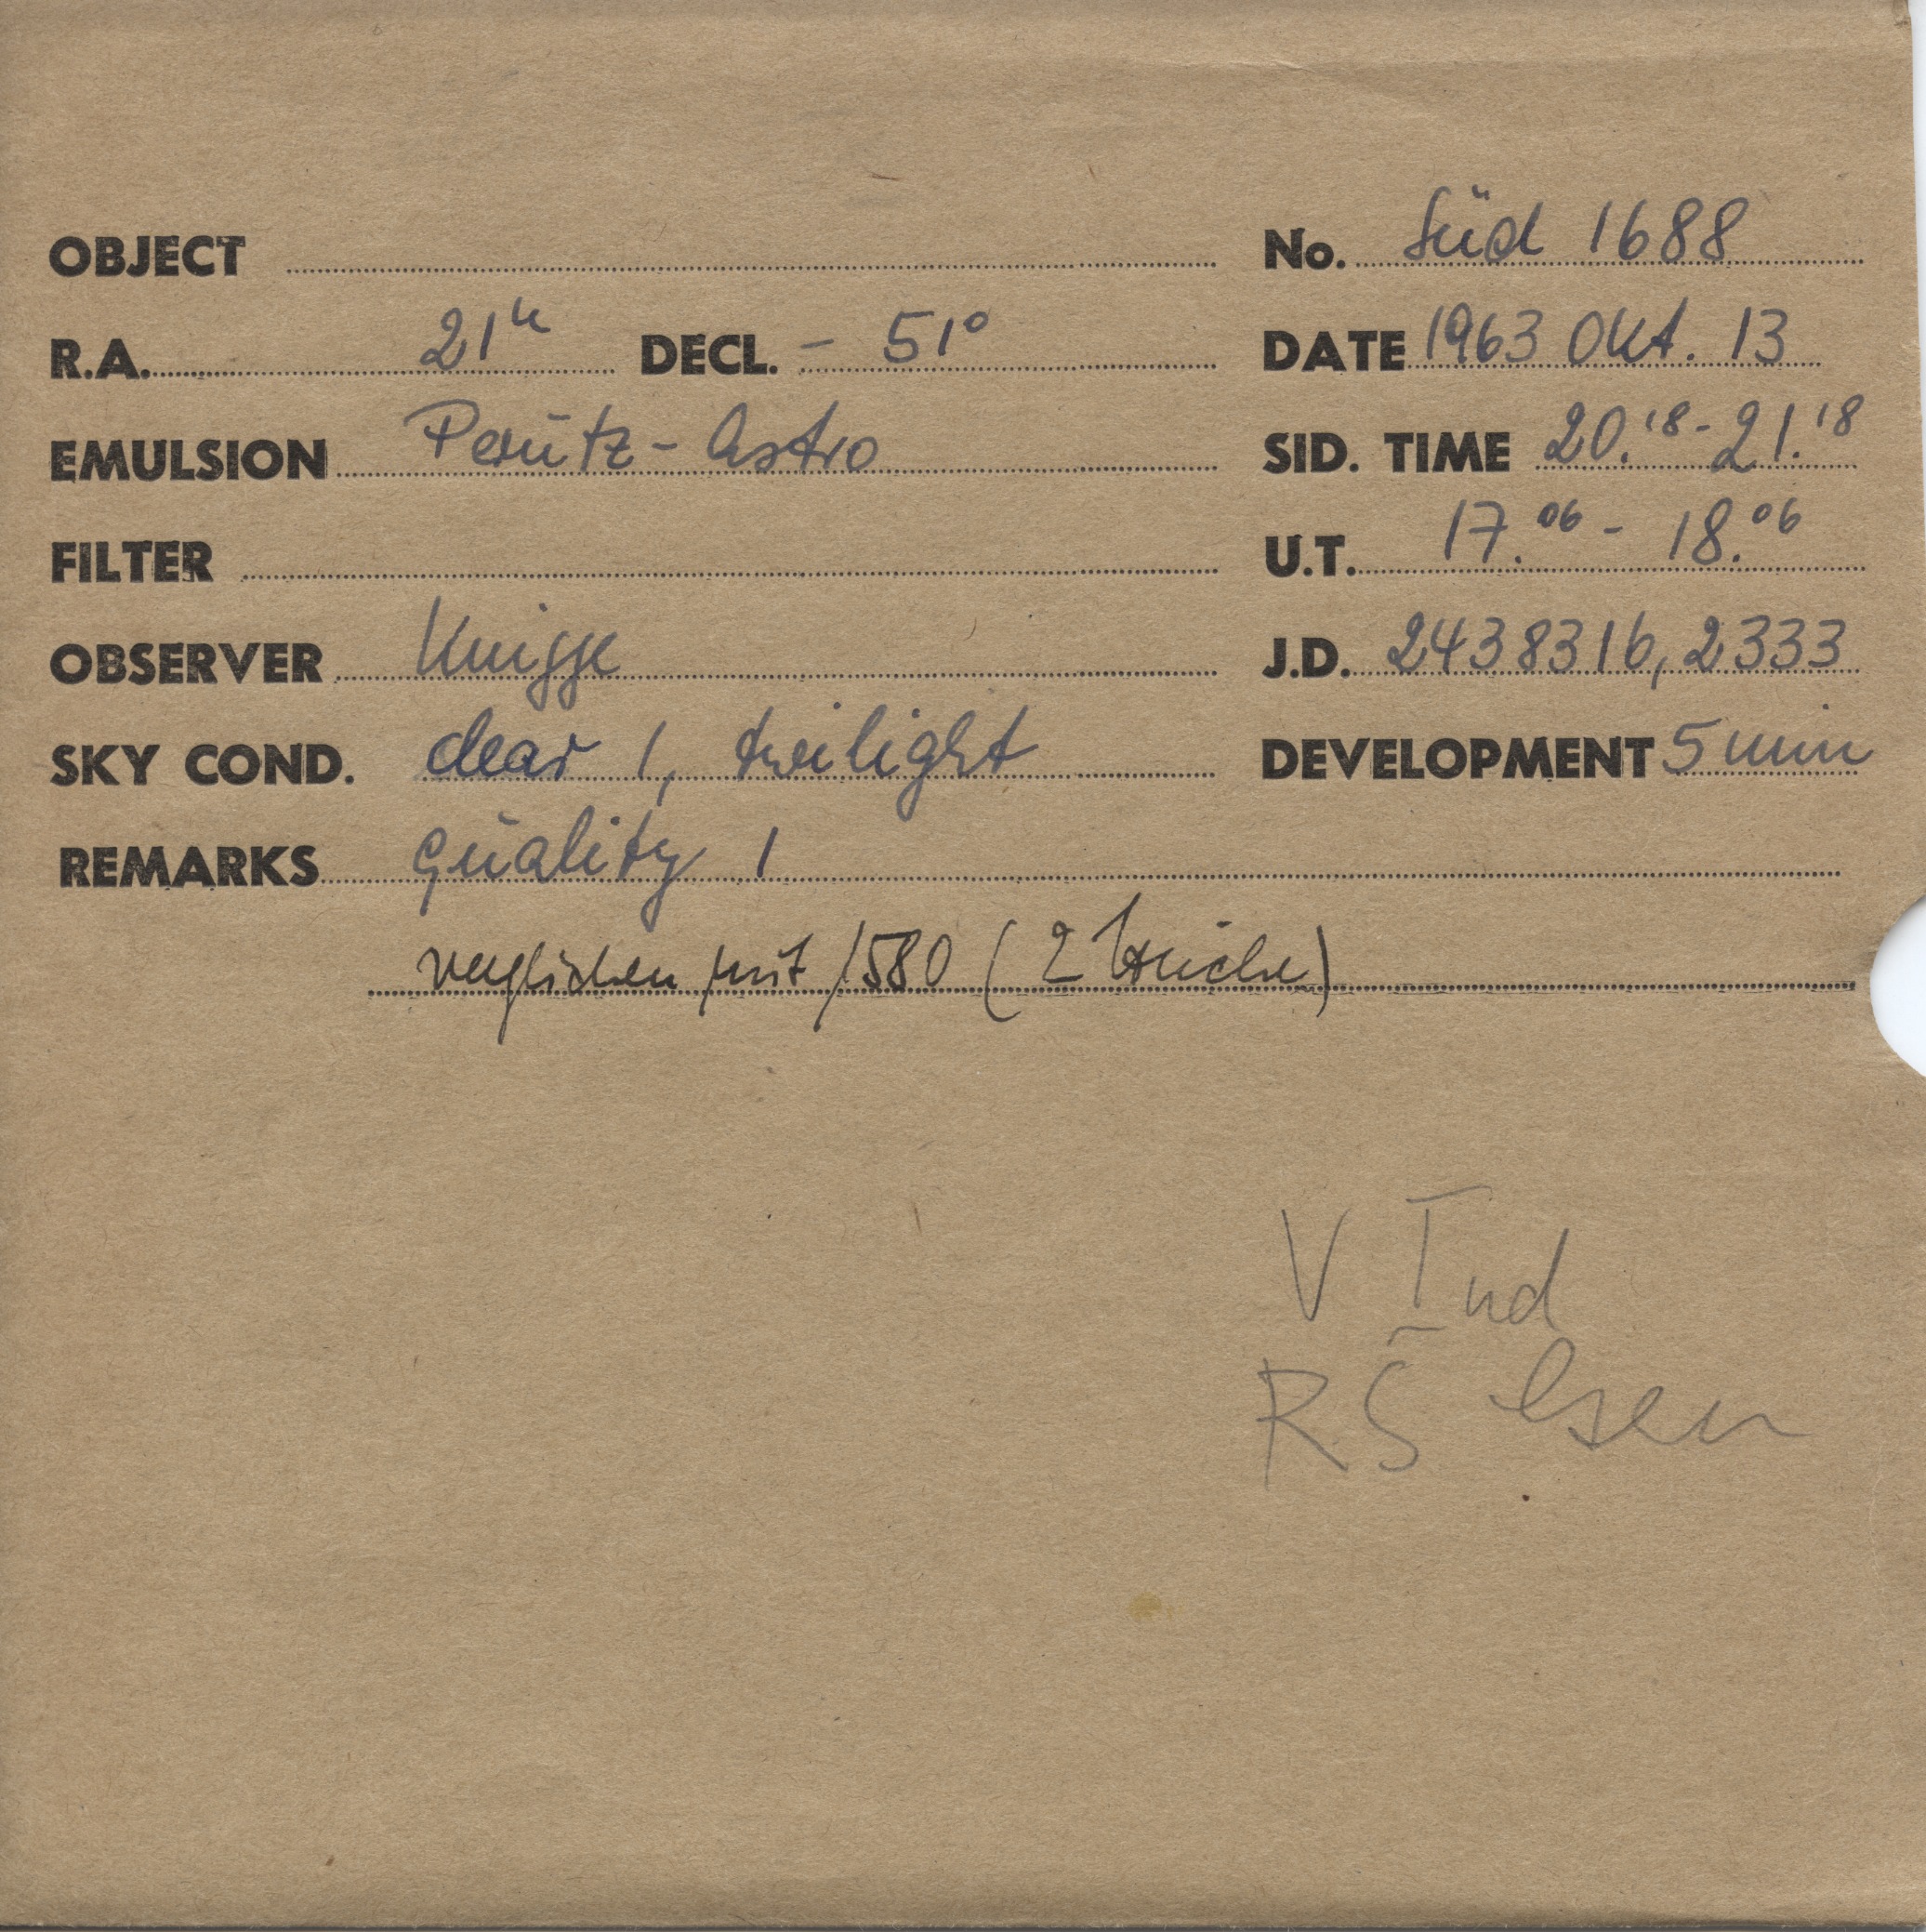 OBJECT No. Süd 1688
R.A. 21h DECL. - 51° DATE 1963 Okt. 13
EMULSION Perutz-Astro SID. TIME 20.18-21.18
FILTER U.T. 17.06 - 18.06
OBSERVER Knigge J.D. 2438316,2333
SKY COND. clear 1, tweilight DEVELOPMENT 5 min
REMARKS quality 1
verglichen mit 1580 (2 Striche)
V Ind
RS